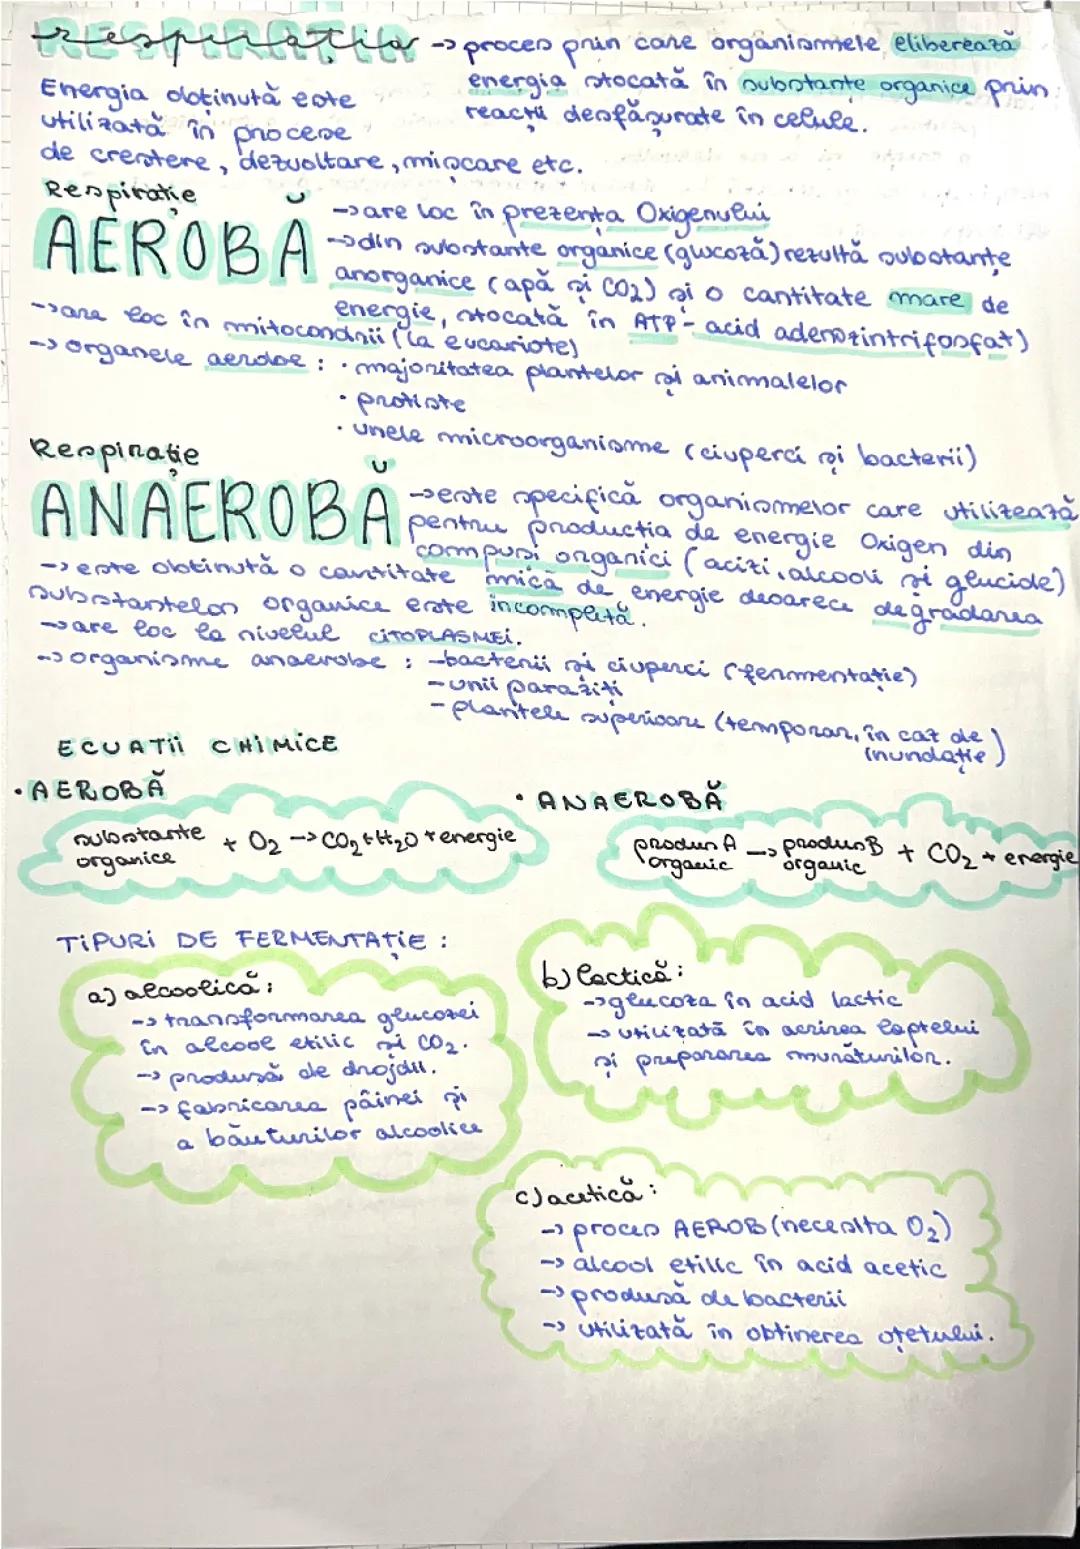 respirația → proces prin care organismele eliberează
energia stocată în substante organice prin
reacții desfășurate în celule.
Energia obținută este
utilizată în procese
de crestere, dezvoltare, mișcare etc.
Respirație
AEROBĂ
→ are loc în prezența Oxigenului
→ din substante organice (glucoză) rezultă substanțe
anorganice (apă și CO2) și o cantitate mare de
energie, stocată în ATP - acid adenozintrifosfat)
→ are loc în mitocondrii (la eucariote)
→ organele aerobe : · majoritatea plantelor și animalelor
· protiste
· unele microorganisme (ciuperci și bacterii)
Respirație
ANAEROBĂ
→ este specifică organismelor care utilizează
pentru producția de energie Oxigen din
compuși organici (acizi, alcooli și glucide)
→ este obtinută o cantitate mică de energie deoarece degradarea
substantelor organice este incompletă.
→ are loc la nivelul CITOPLASMEI.
→ organisme anaerobe : - bacterii și ciuperci (fermentație)
- unii paraziți
- plantele superioare (temporar, în caz de
inundație)
ECUATii CHiMiCE
· AEROBĂ
substante organice + O2 → CO2 + H2O + energie
· ANAEROBĂ
produs A organic → produs B organic + CO2 + energie
TiPURi DE FERMENTAȚiE :
a) alcoolică :
→ transformarea glucozei
în alcool etilic și CO2.
→ produsă de drojdii.
→ fabricarea pâinei și
a băuturilor alcoolice
b) lactică :
→ glucoza în acid lactic
→ utilizată în acrirea laptelui
și prepararea murăturilor.
c) acetică :
→ proces AEROB (necesita O2)
→ alcool etilic în acid acetic
→ produsă de bacterii
→ utilizată în obtinerea oțetului.